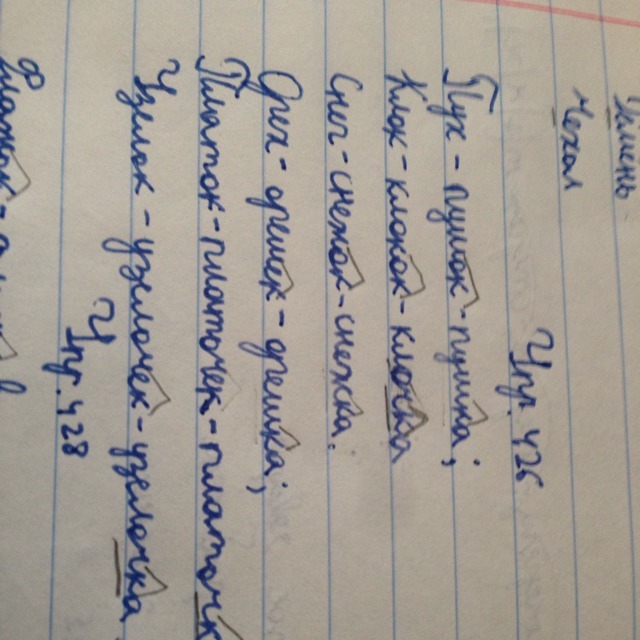 Чехол
Упр. 426
Пух - пушок - пушка;
Клок - клочок - клочка
Снег - снежок - снежка.
Орех - орешек - орешка;
Платок - платочек - платочк
Узелок - узелочек - узелочка,
Упр. 428